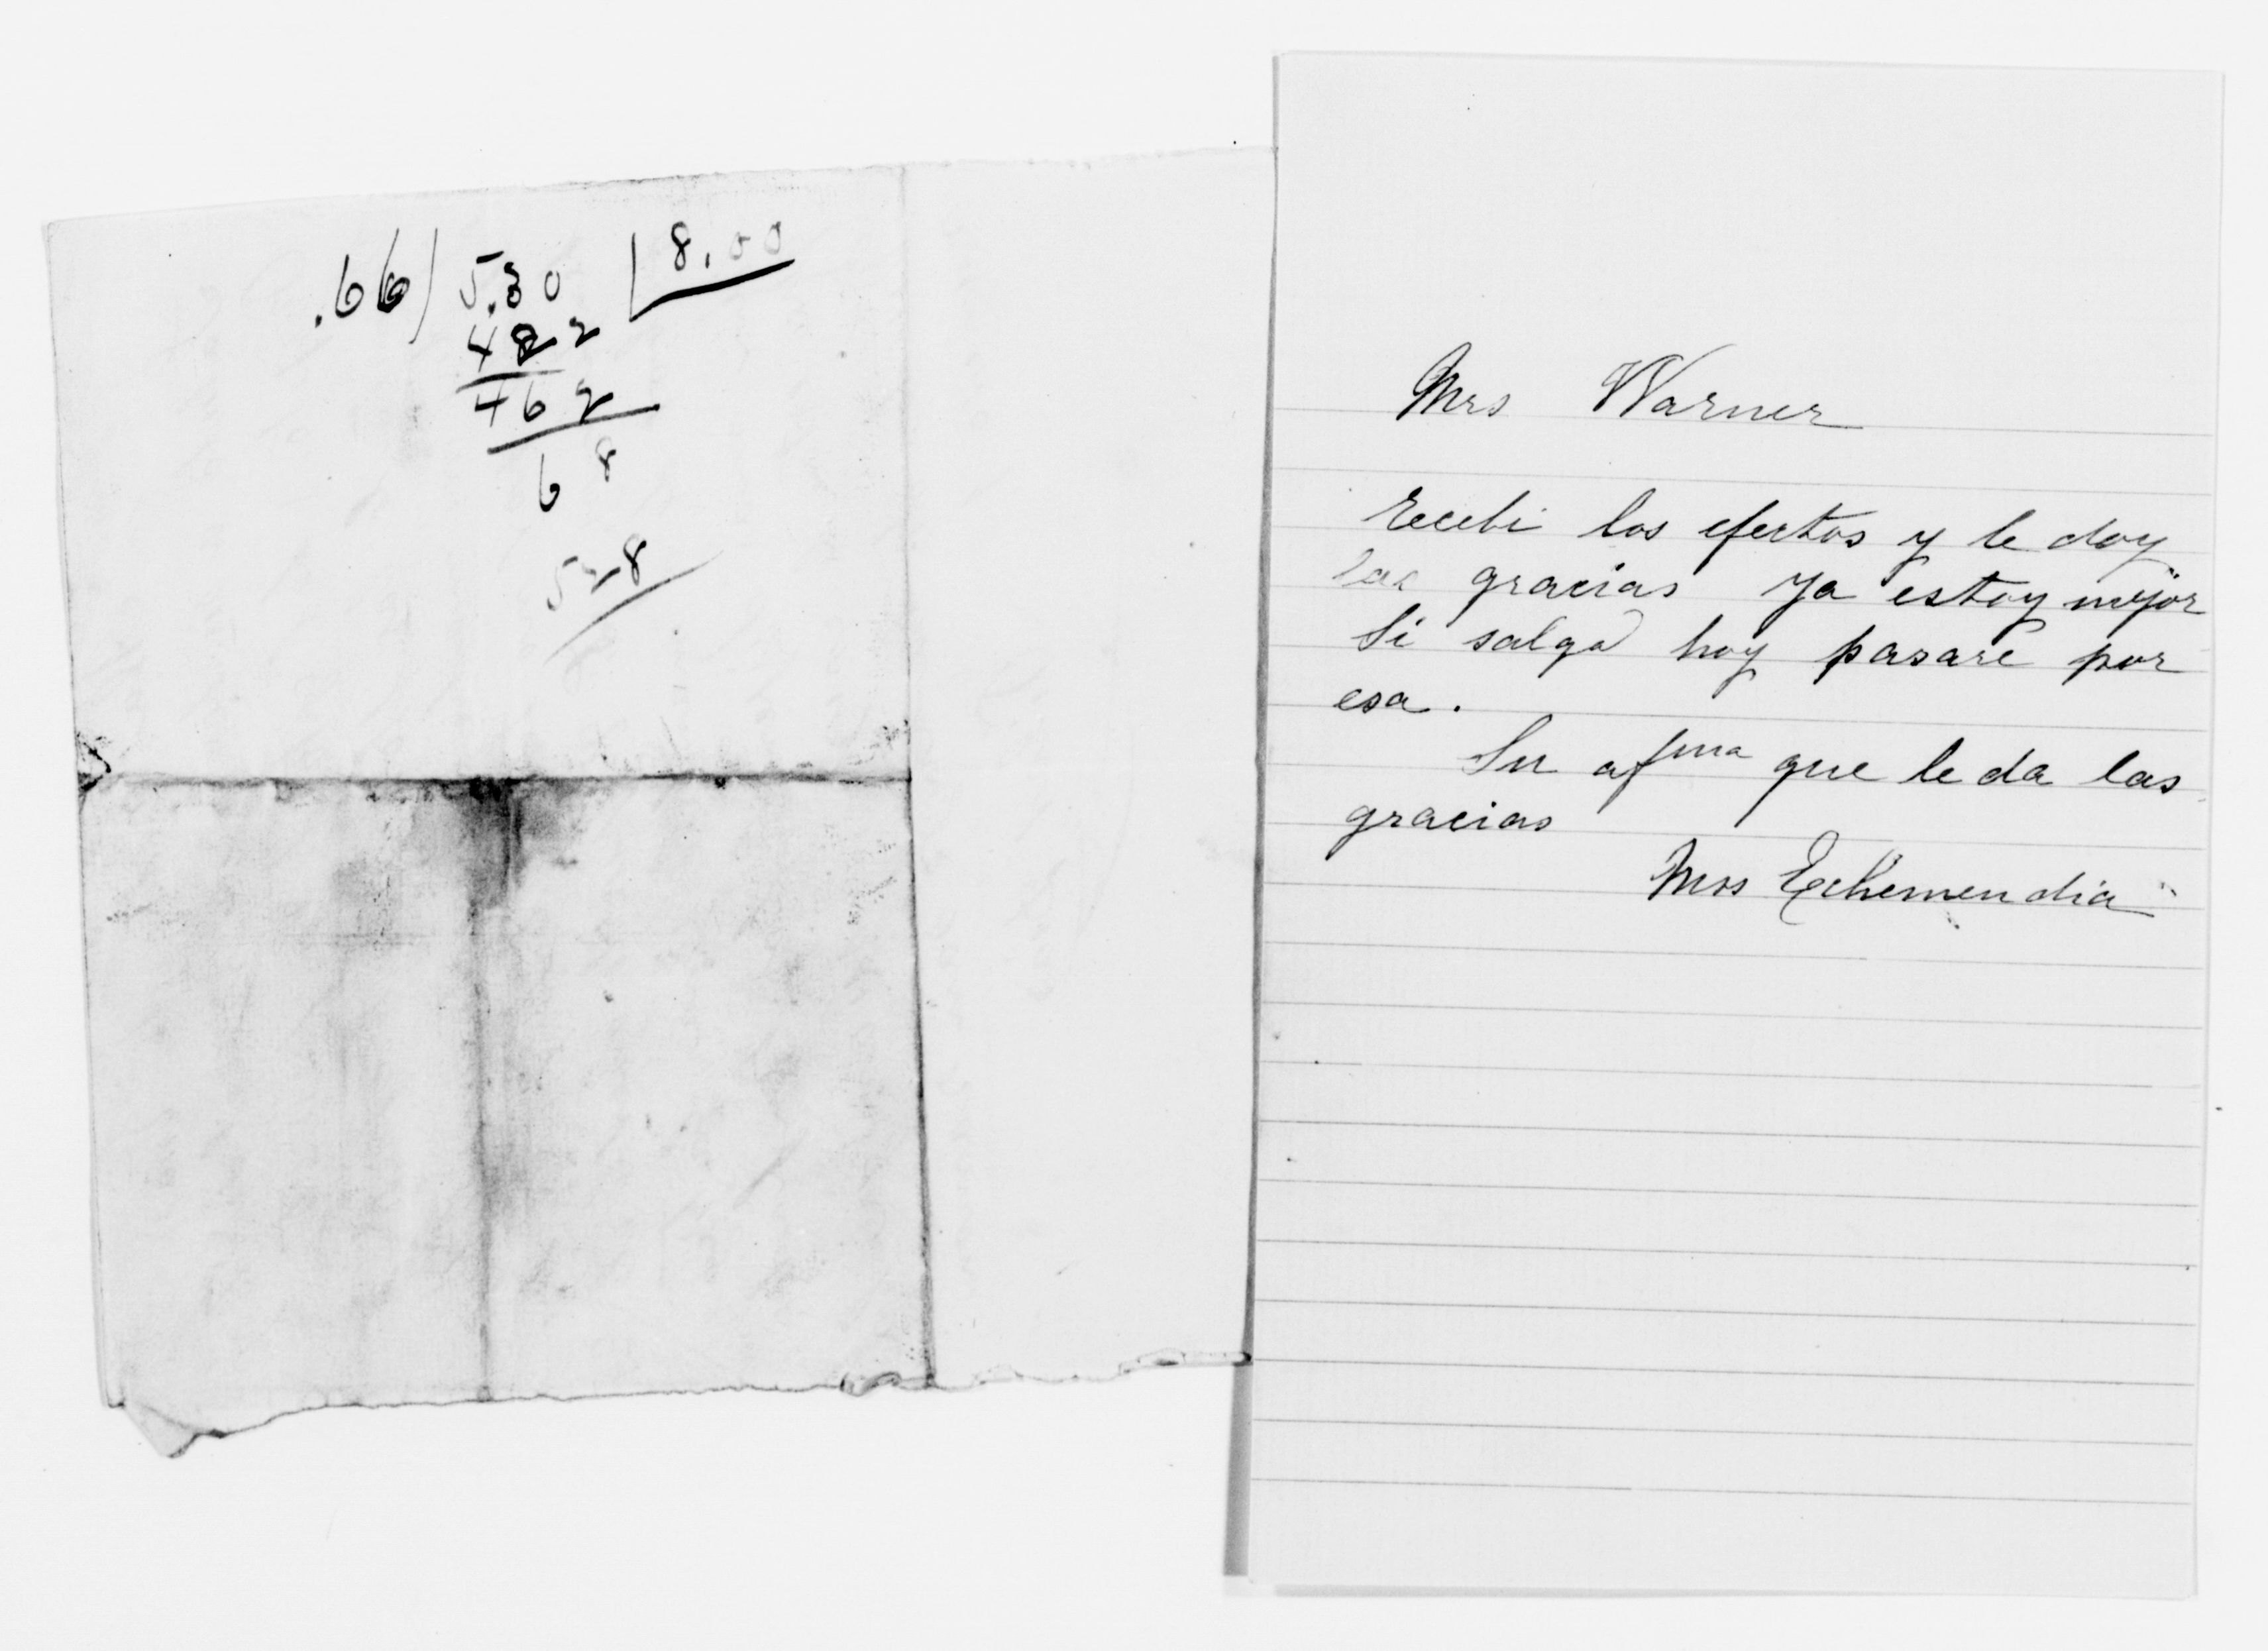 .66) 5.30 | 8.00
482
462
68
528
Mrs Warner
recebi los efectos y le doy
las gracias Ya estoy mejor
Si salgo hoy pasare por
esa.
Su afma que le da las
gracias
Mrs Echemendia